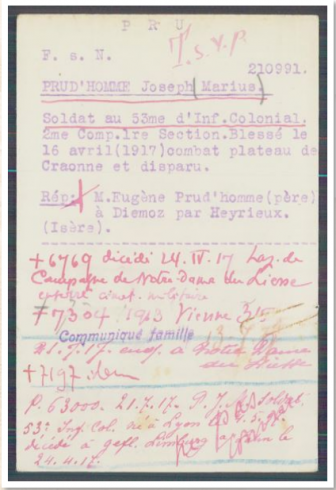 P R U
T.s.v.P.
F. s. N.
210991.
PRUD'HOMME Joseph(Marius)
Soldat au 53me d'Inf.Colonial,
2me Comp.1re Section.Blessé le
16 avril(1917)combat plateau de
Craonne et disparu.
Rép: M.Eugène Prud'homme(père)
à Diemoz par Heyrieux.
(Isère).
+6769 décédé 24.IV.17 Laz. de
Campagne de Notre-Dame de Liesse
cimet. militaire
+7304 1913 Vienne
Communiqué famille
à Notre Dame
de Liesse
+7197.
P. 63000. 21.7.17. Soldat,
53e Inf. Col. né à Lyon
décédé à gefl. Limburg le
24.4.17.